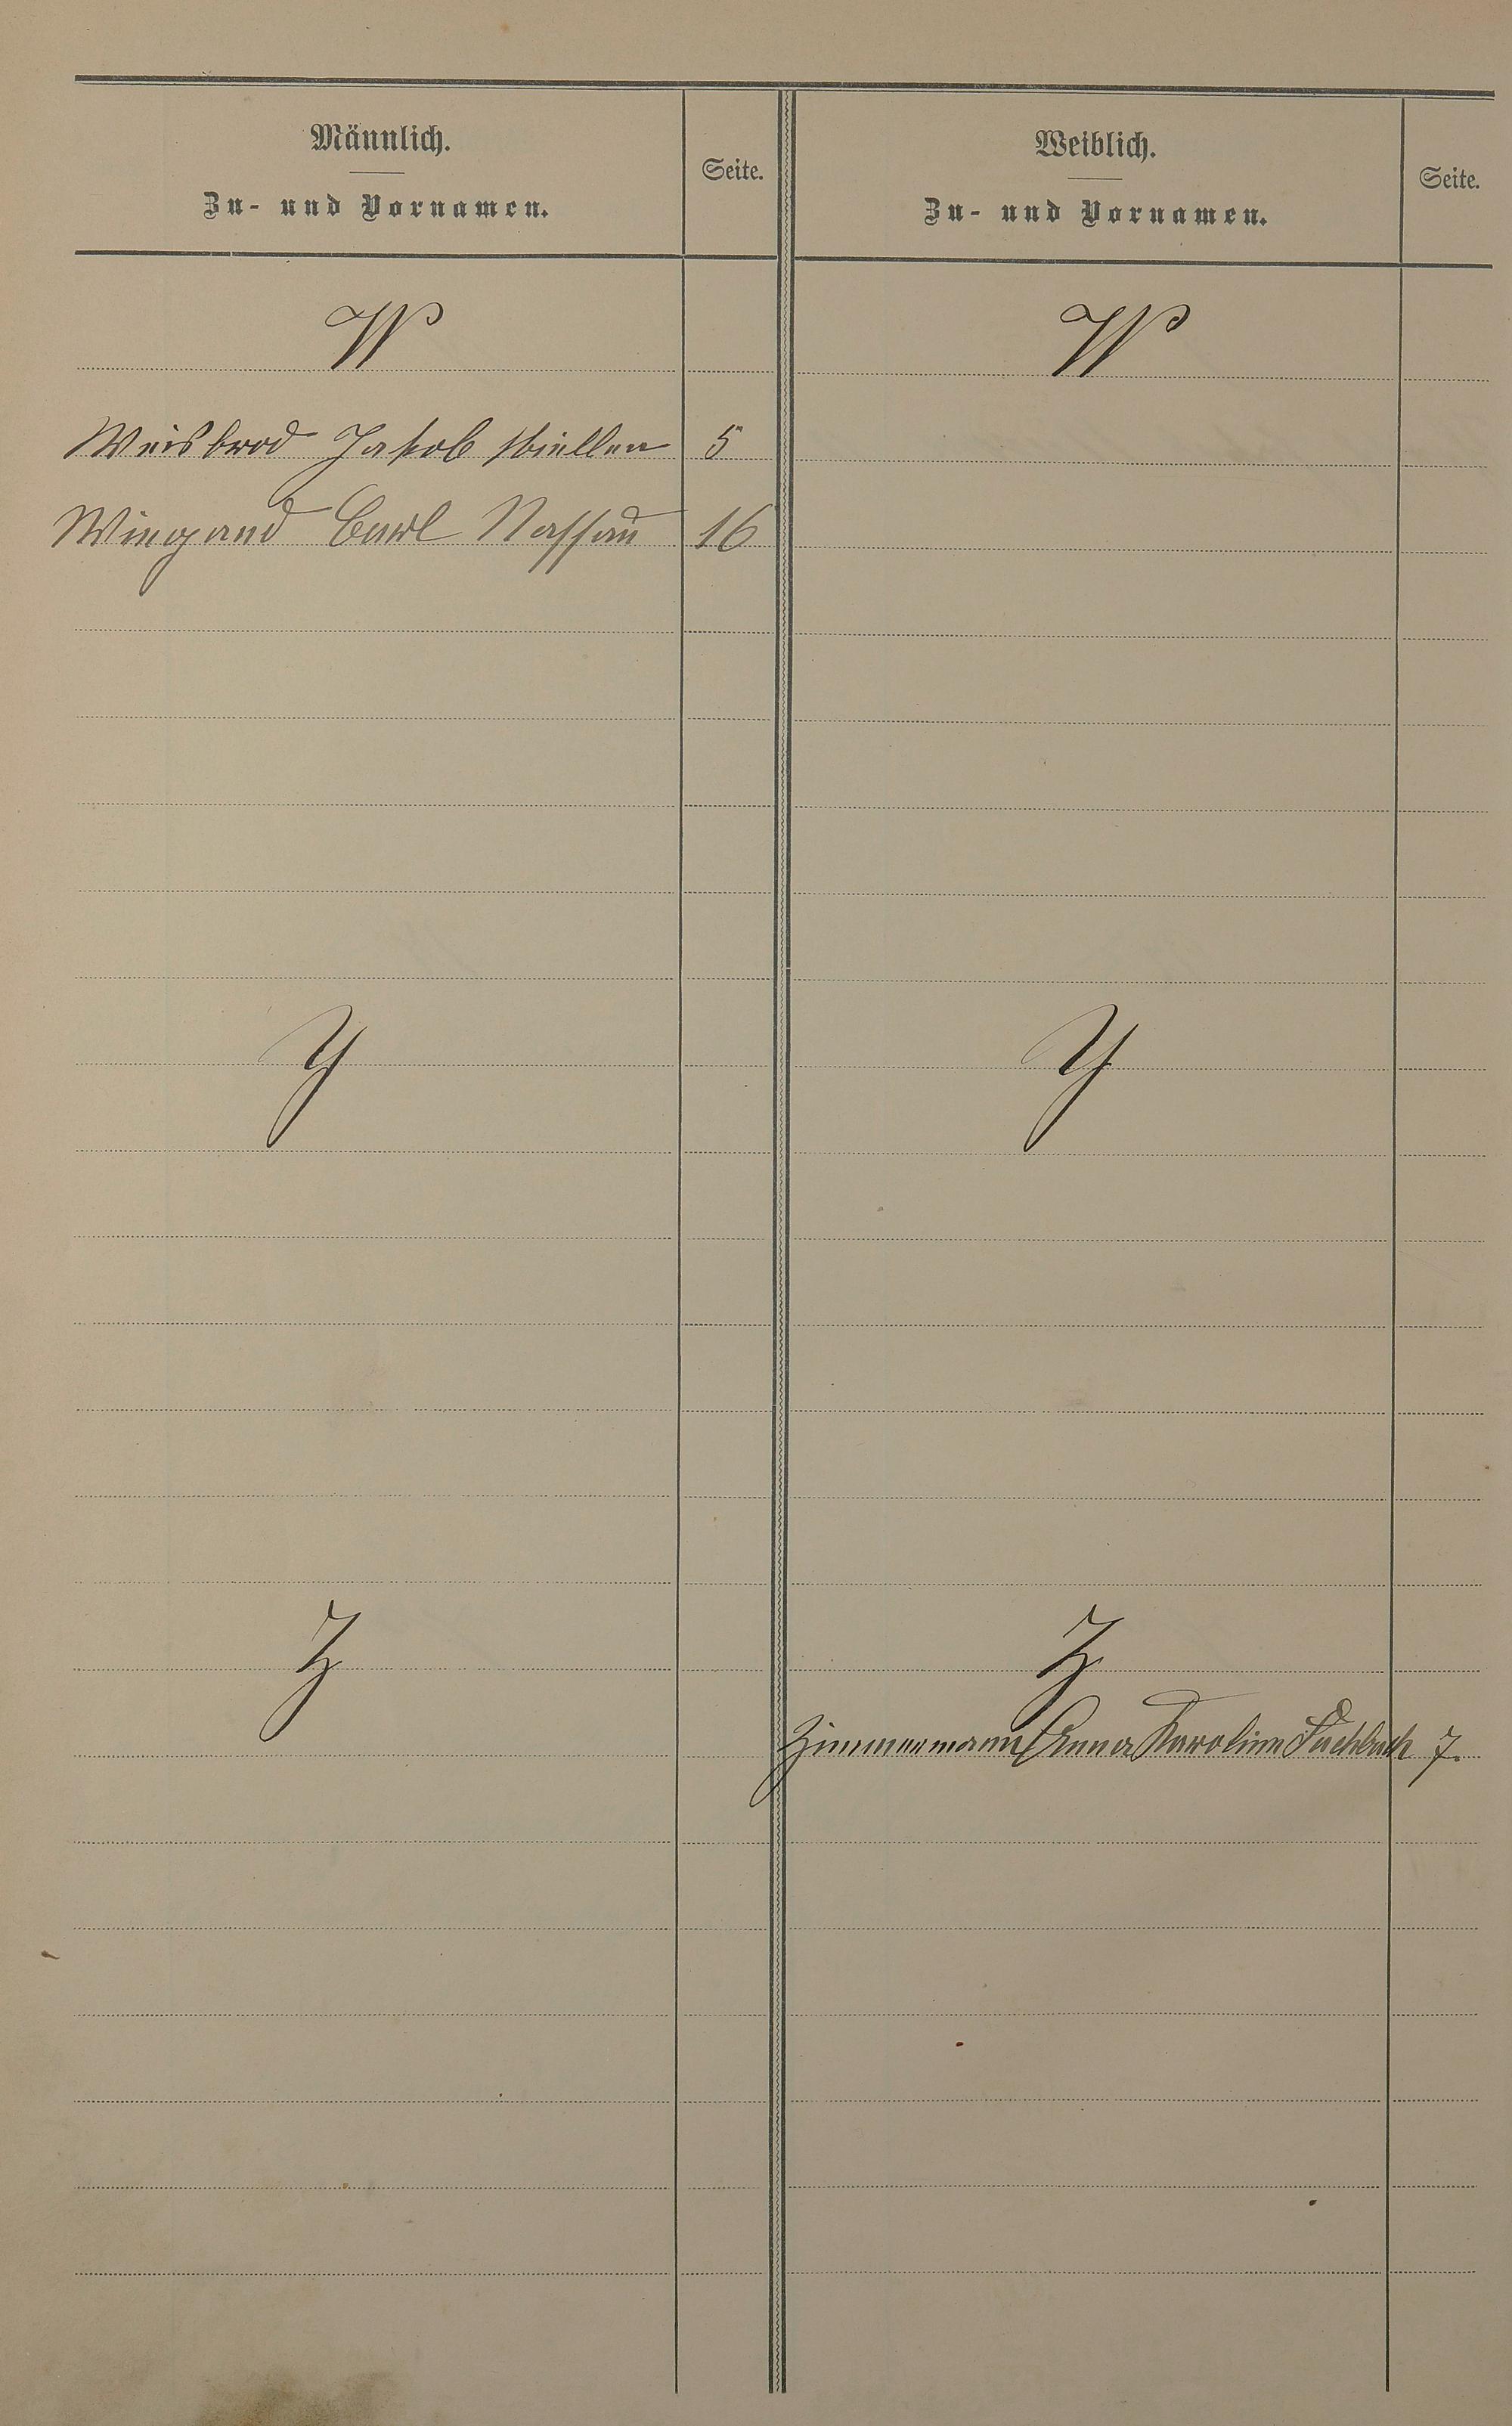 Männlich.
Zu- und Vornamen.
Seite.
Weiblich.
Zu- und Vornamen.
Seite.
W
W
Weisbrod Jakob 5
Wingand Carl Nassau 16
Y
Y
Z
Z
Zimmermann Anna Karoline Fachbach 7.